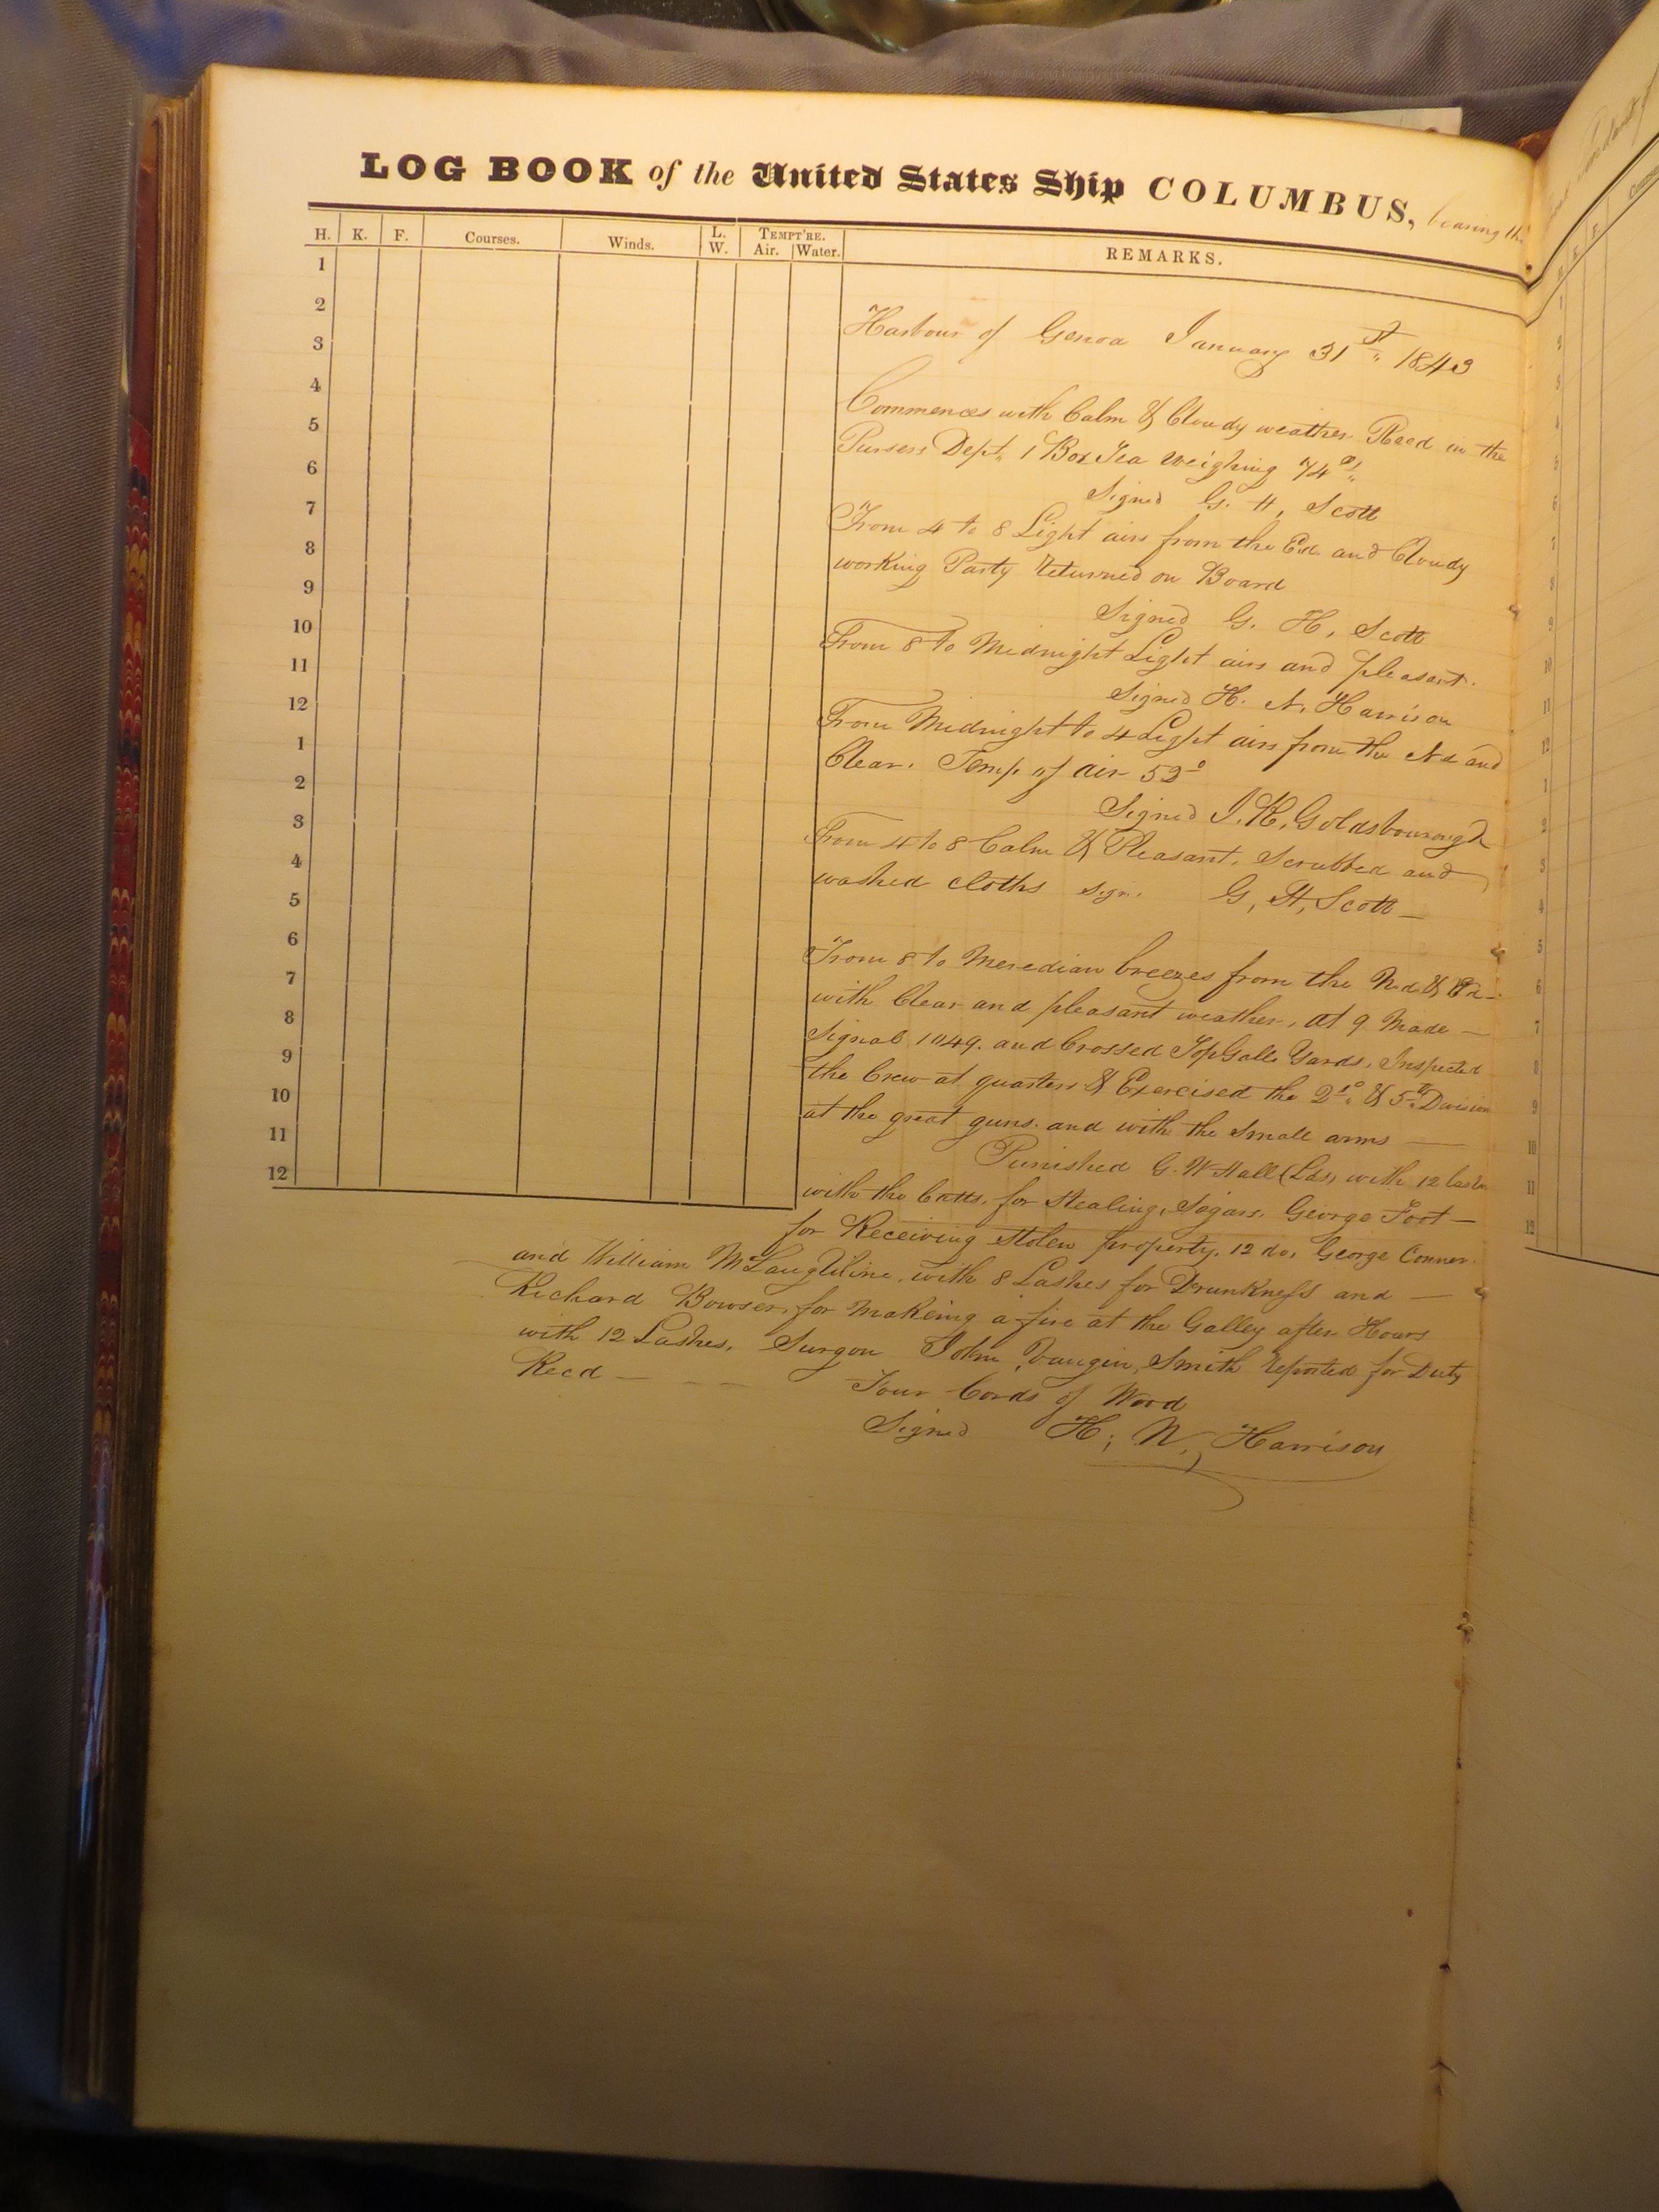 LOG BOOK of the United States Ship COLUMBUS, bearing the
H. K. F. Courses. Winds. L. W. TEMPT'RE. Air. Water. REMARKS.
1
2
3
4
5
6
7
8
9
10
11
12
1
2
3
4
5
6
7
8
9
10
11
12
Harbour of Genoa January 31st 1843
Commences with Calm & Cloudy weather Recd in the
Pursers Dept. 1 Box Tea weighing 74
Signed G. H. Scott
From 4 to 8 Light airs from the Ed. and Cloudy
working Party returned on Board
Signed G. H. Scott
From 8 to Midnight Light airs and pleasant.
Signed H. N. Harrison
From Midnight to 4 Light airs from the Nd and
Clear. Temp. of air 52°
Signed J. R. Goldsbourough
From 4 to 8 Calm & Pleasant. Scrubbed and
washed cloths Sign. G, H, Scott —
From 8 to Meredian breezes from the Nd. & Ed—
with Clear and pleasant weather, at 9 Made —
Signal 1049. and Crossed TopGall. Yards, Inspected
the Crew at quarters & Exercised the 2d. & 5th Division
at the great guns. and with the Small arms —
Punished G. W Hall (Lds) with 12 lashes
with the Catts. for Stealing, Segars. George Foot —
for Receiving Stolen property. 12 do. George Conner.
and William McLaughline, with 8 Lashes for Drunkness and —
Richard Bowser, for Makeing a fire at the Galley after Hours
with 12 Lashes. Surgon John Smith reported for Duty
Recd — — — — Four Cords of Wood
Signed H. N. Harrison